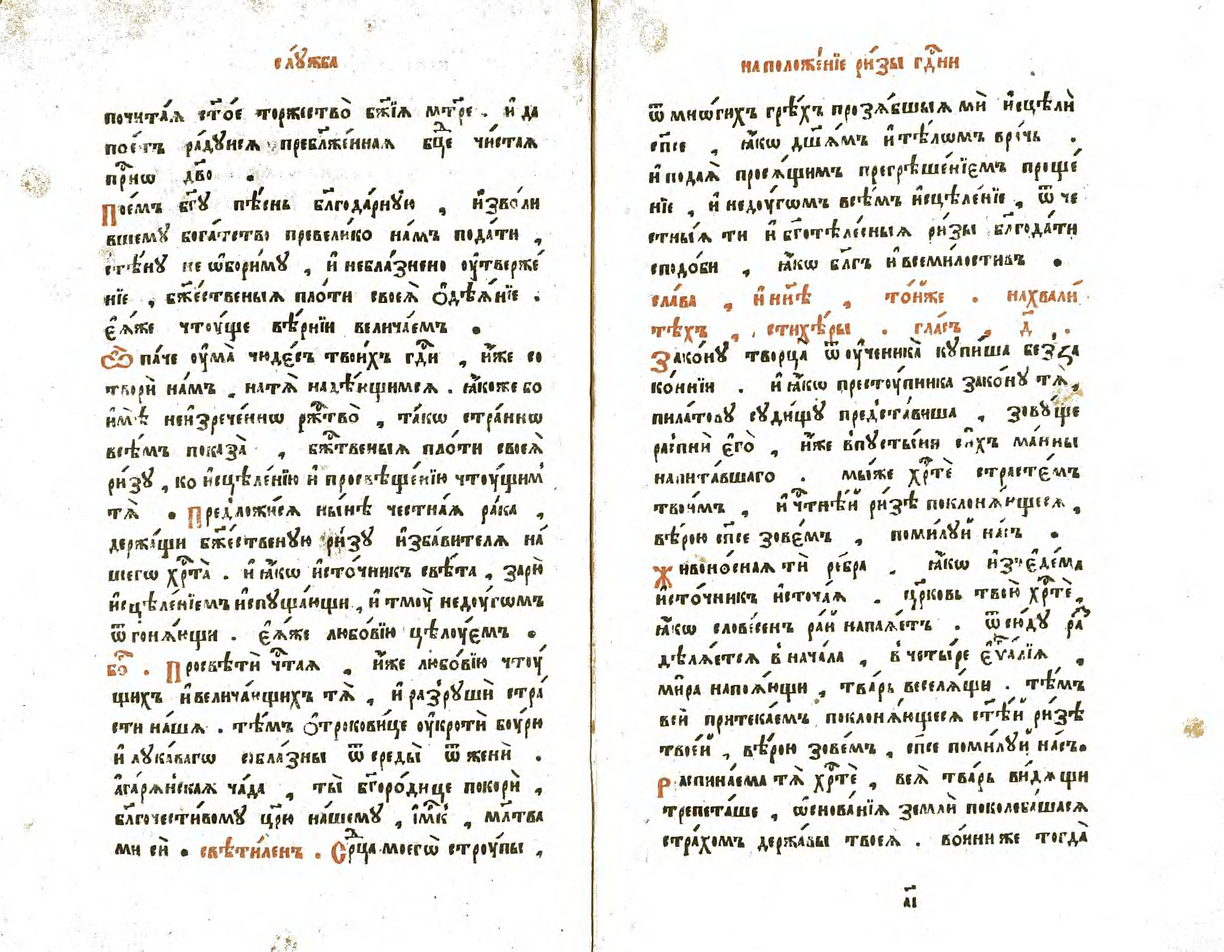 слꙋ́жба
почита́ѧ ст҃о́е торжество̀ бж҃їѧ мт҃ре . и҆ да
пое́тъ ра́дꙋисѧ преблаже́ннаѧ бц҃е чи́стаѧ
при́сѡ дв҃о .
Пое́мъ бг҃ꙋ пѣ́снь бл҃года́рнꙋю , и҆зволи
вшемꙋ̀ бога́тство превели́ко на́мъ пода́ти ,
стѣ́нꙋ не ѡ҆бори́мꙋ , и҆ небла́знено ᲂу҆тверже́
нїе , бж҃е́ственыѧ пло́ти своеѧ̀ ѻ҆дѣѧ́нїе .
є҆ѧ́же чтꙋ́ще вѣ́рнїи велича́емъ .
Ѽ па́че ᲂу҆ма̀ чюде́съ твои́хъ гд҃и , и҆́же со
творѝ на́мъ , на тѧ̀ надѣ́ющимсѧ . ꙗ҆́коже бо
и҆мѣ̀ неизрече́ннѡ ржт҃во̀ , та́кѡ стра́ннѡ
всѣ́мъ показа̀ , бж҃твеныѧ пло́ти своеѧ̀
ри́зꙋ , ко и҆сцѣле́нїю и҆ просвѣще́нїю чтꙋ́щим
тѧ̀ . Предложи́сѧ ны́нѣ честна́ѧ ра́ка ,
держа́щи бж҃е́ственꙋю ри́зꙋ и҆зба́вителѧ на́
шегѡ хрт҃а̀ . и҆ ꙗ҆́кѡ и҆сто́чникъ свѣ́та , зарѝ
и҆сцѣле́нїемъ испꙋща́ющи , и҆ тмꙋ̀ недꙋ́гѡмъ
ѿгонѧ́ющи . є҆ѧ́же любо́вїю цѣлꙋ́емъ .
бо҃ . Просвѣтѝ чт҃аѧ , и҆́же любо́вїю чтꙋ́
щихъ и҆ велича́ющихъ тѧ̀ , и҆ разрꙋшѝ стра́
сти на́шѧ . тѣ́мъ ѻ҆трокови́це ᲂу҆кротѝ бꙋ́рю
и҆ лꙋка́вагѡ собла́зны ѿ среды̀ ѿженѝ .
а҆гарѧ́нскаѧ ча́да , ты̀ бг҃оро́дице покорѝ ,
бл҃гочести́вомꙋ цр҃ю на́шемꙋ , і҆мк҃ , мл҃тва
ми сѝ . свѣти́ленъ . Ср҃ца моегѡ̀ стрꙋ́пы ,
на положе́нїе ри́зы гдн҃и
ѿ мно́гихъ грѣ́хъ прозѧ́бшыѧ мѝ и҆сцѣлѝ
сп҃се , ꙗ҆́кѡ дш҃а́мъ и҆ тѣлѡ́мъ вра́чь .
и҆ пода́ѧ просѧ́щимъ прегрѣше́нїемъ проще́
нїе , и҆ недꙋ́гѡмъ всѣ́мъ и҆сцѣле́нїе , ѿ че
стны́ѧ ти и҆ бг҃отѣле́сныѧ ри́зы бл҃года́ти
сподо́би , ꙗ҆́кѡ бл҃гъ и҆ всеми́лостивъ .
сла́ва , и҆ ни҃нѣ , то́йже . на хвали́
тѣхъ , стихѣ́ры . гла́съ , д҃ .
Зако́нꙋ творца̀ ѿ ᲂу҆ченика̀ кꙋпи́ша беꙁза
ко́ннїи . и҆ ꙗ҆́кѡ престꙋ́пника зако́нꙋ тѧ̀ ,
пила́товꙋ сꙋди́щꙋ предста́виша , зовꙋ́ще
распнѝ є҆го̀ , и҆́же в пꙋсты́ни си́хъ ма́нны
напита́вшаго . мы́же хрт҃ѐ страсте́мъ
твои́мъ , и҆ чт҃нѣ́й ри́зѣ поклонѧ́ющесѧ ,
вѣ́рою сп҃се зове́мъ , поми́лꙋй на́съ .
Живоно́снаѧ тѝ ребра . ꙗ҆́кѡ из є҆де́ма
и҆сто́чникъ и҆сточа́ѧ . цр҃ковь твою̀ хрт҃ѐ ,
ꙗ҆́кѡ слове́сенъ ра́й напаѧ́етъ . ѿсю́дꙋ ра
дѣлѧ́етсѧ в нача́ла , в четы́ре є҆ѵ҃а́лїѧ ,
ми́ра напоѧ́ющи , тва́рь веселѧ́щи . тѣ́мъ
вси притека́емъ поклонѧ́ющесѧ ст҃ѣ́й ри́зѣ
твое́й , вѣ́рою зове́мъ , сп҃се поми́лꙋй на́съ .
Распина́ема тѧ̀ хрт҃ѐ , всѧ̀ тва́рь ви́дѧщи
трепета́ше , ѡ҆снова́нїѧ землѝ поколеба́шасѧ
стра́хомъ держа́вы твоеѧ̀ . во́ини же тогда̀
а҃і